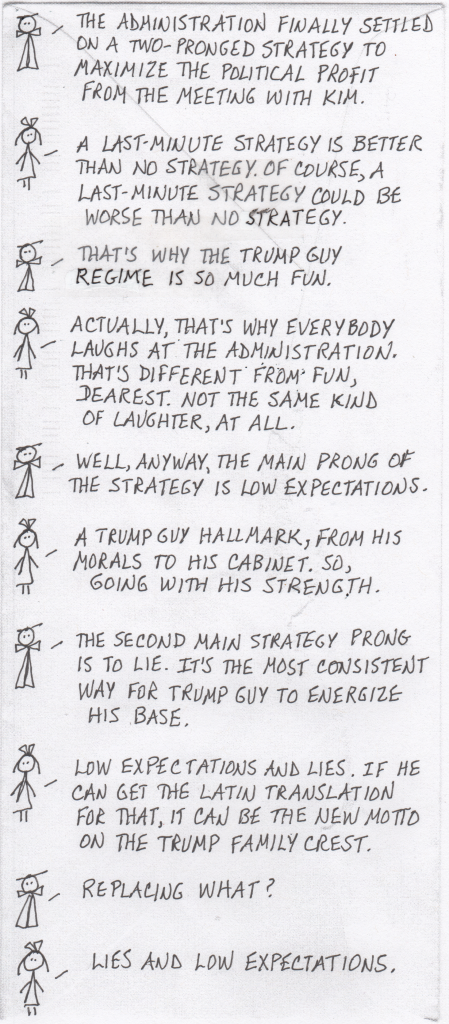 THE ADMINISTRATION FINALLY SETTLED
ON A TWO-PRONGED STRATEGY TO
MAXIMIZE THE POLITICAL PROFIT
FROM THE MEETING WITH KIM.
A LAST-MINUTE STRATEGY IS BETTER
THAN NO STRATEGY. OF COURSE, A
LAST-MINUTE STRATEGY COULD BE
WORSE THAN NO STRATEGY.
THAT'S WHY THE TRUMP GUY
REGIME IS SO MUCH FUN.
ACTUALLY, THAT'S WHY EVERYBODY
LAUGHS AT THE ADMINISTRATION.
THAT'S DIFFERENT FROM FUN,
DEAREST. NOT THE SAME KIND
OF LAUGHTER, AT ALL.
WELL, ANYWAY, THE MAIN PRONG OF
THE STRATEGY IS LOW EXPECTATIONS.
A TRUMP GUY HALLMARK, FROM HIS
MORALS TO HIS CABINET. SO,
GOING WITH HIS STRENGTH.
THE SECOND MAIN STRATEGY PRONG
IS TO LIE. IT'S THE MOST CONSISTENT
WAY FOR TRUMP GUY TO ENERGIZE
HIS BASE.
LOW EXPECTATIONS AND LIES. IF HE
CAN GET THE LATIN TRANSLATION
FOR THAT, IT CAN BE THE NEW MOTTO
ON THE TRUMP FAMILY CREST.
REPLACING WHAT?
LIES AND LOW EXPECTATIONS.